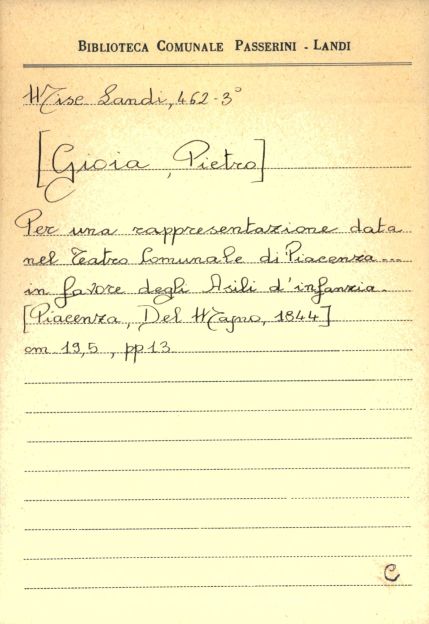 BIBLIOTECA COMUNALE PASSERINI - LANDI
Misc. Landi, 462-3°
[Gioia, Pietro]
Per una rappresentazione data
nel Teatro Comunale di Piacenza...
in favore degli Asili d'infanzia.
[Piacenza, Del Majno, 1844]
cm 19,5, pp 13
C